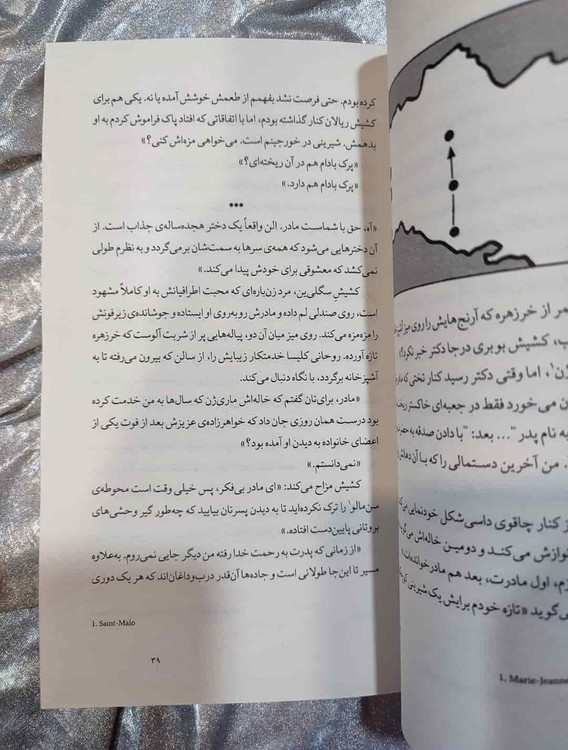 کرده بودم. حتی فرصت نشد بفهمم از طعمش خوشش آمده یا نه. یکی هم برای
کشیش ریالان کنار گذاشته بودم، اما با اتفاقاتی که افتاد پاک فراموش کردم به او
بدهمش. شیرینی در خورجینم است. می‌خواهی مزه‌اش کنی؟»
«پرک بادام هم در آن ریخته‌ای؟»
«پرک بادام هم دارد.»
•••
«آه، حق با شماست مادر. الن واقعاً یک دختر هجده‌ساله‌ی جذاب است. از
آن دخترهایی می‌شود که همه‌ی سرها به سمت‌شان برمی‌گردد و به نظرم طولی
نمی‌کشد که معشوقی برای خودش پیدا می‌کند.»
کشیشِ سگلی‌ین، مرد زن‌باره‌ای که محبت اطرافیانش به او کاملاً مشهود
است، روی صندلی لم داده و مادرش روبه‌روی او ایستاده و جوشانده‌ی زیرفونش
را مزه‌مزه می‌کند. روی میز میان آن دو، پیاله‌هایی پر از شربت آلوست که خرزهره
تازه آورده. روحانی کلیسا خدمتکار زیبایش را، از سالن که بیرون می‌رفته تا به
آشپزخانه برگردد، با نگاه دنبال می‌کند.
«مادر، برای‌تان گفتم که خاله‌اش ماری‌ژن که سال‌ها به من خدمت کرده
بود درست همان روزی جان داد که خواهرزاده‌ی عزیزش بعد از فوت یکی از
اعضای خانواده به دیدن او آمده بود؟»
«نمی‌دانستم.»
کشیش مزاح می‌کند: «ای مادر بی‌فکر، پس خیلی وقت است محوطه‌ی
سن‌مالو¹ را ترک نکرده‌اید تا به دیدن پسرتان بیایید که چه‌طور گیر وحشی‌های
بروتانی پایین‌دست افتاده.»
«از زمانی که پدرت به رحمت خدا رفته من دیگر جایی نمی‌روم. به‌علاوه
مسیر تا این‌جا طولانی است و جاده‌ها آن‌قدر درب‌وداغان‌اند که هر یک دوری
1. Saint-Malo
۳۹
مر از خرزهره که آرنج‌هایش را روی میز
ب، کشیش بوبری درجا دکتر خبر
ژن¹، اما وقتی دکتر رسید کنار تختی که
ن می‌خورد فقط در جعبه‌ای خاکستر
به نام پدر "... بعد: "با دادن صدقه به
. من آخرین دستمالی را که با آن
از کنار چاقوی داسی‌شکل خودنمایی
نوازش می‌کند و دومین خاله‌اش
زم، اول مادرت، بعد هم مادرخوانده‌ات
ی‌گوید «تازه خودم برایش یک شیرینی
1. Marie-Jeanne